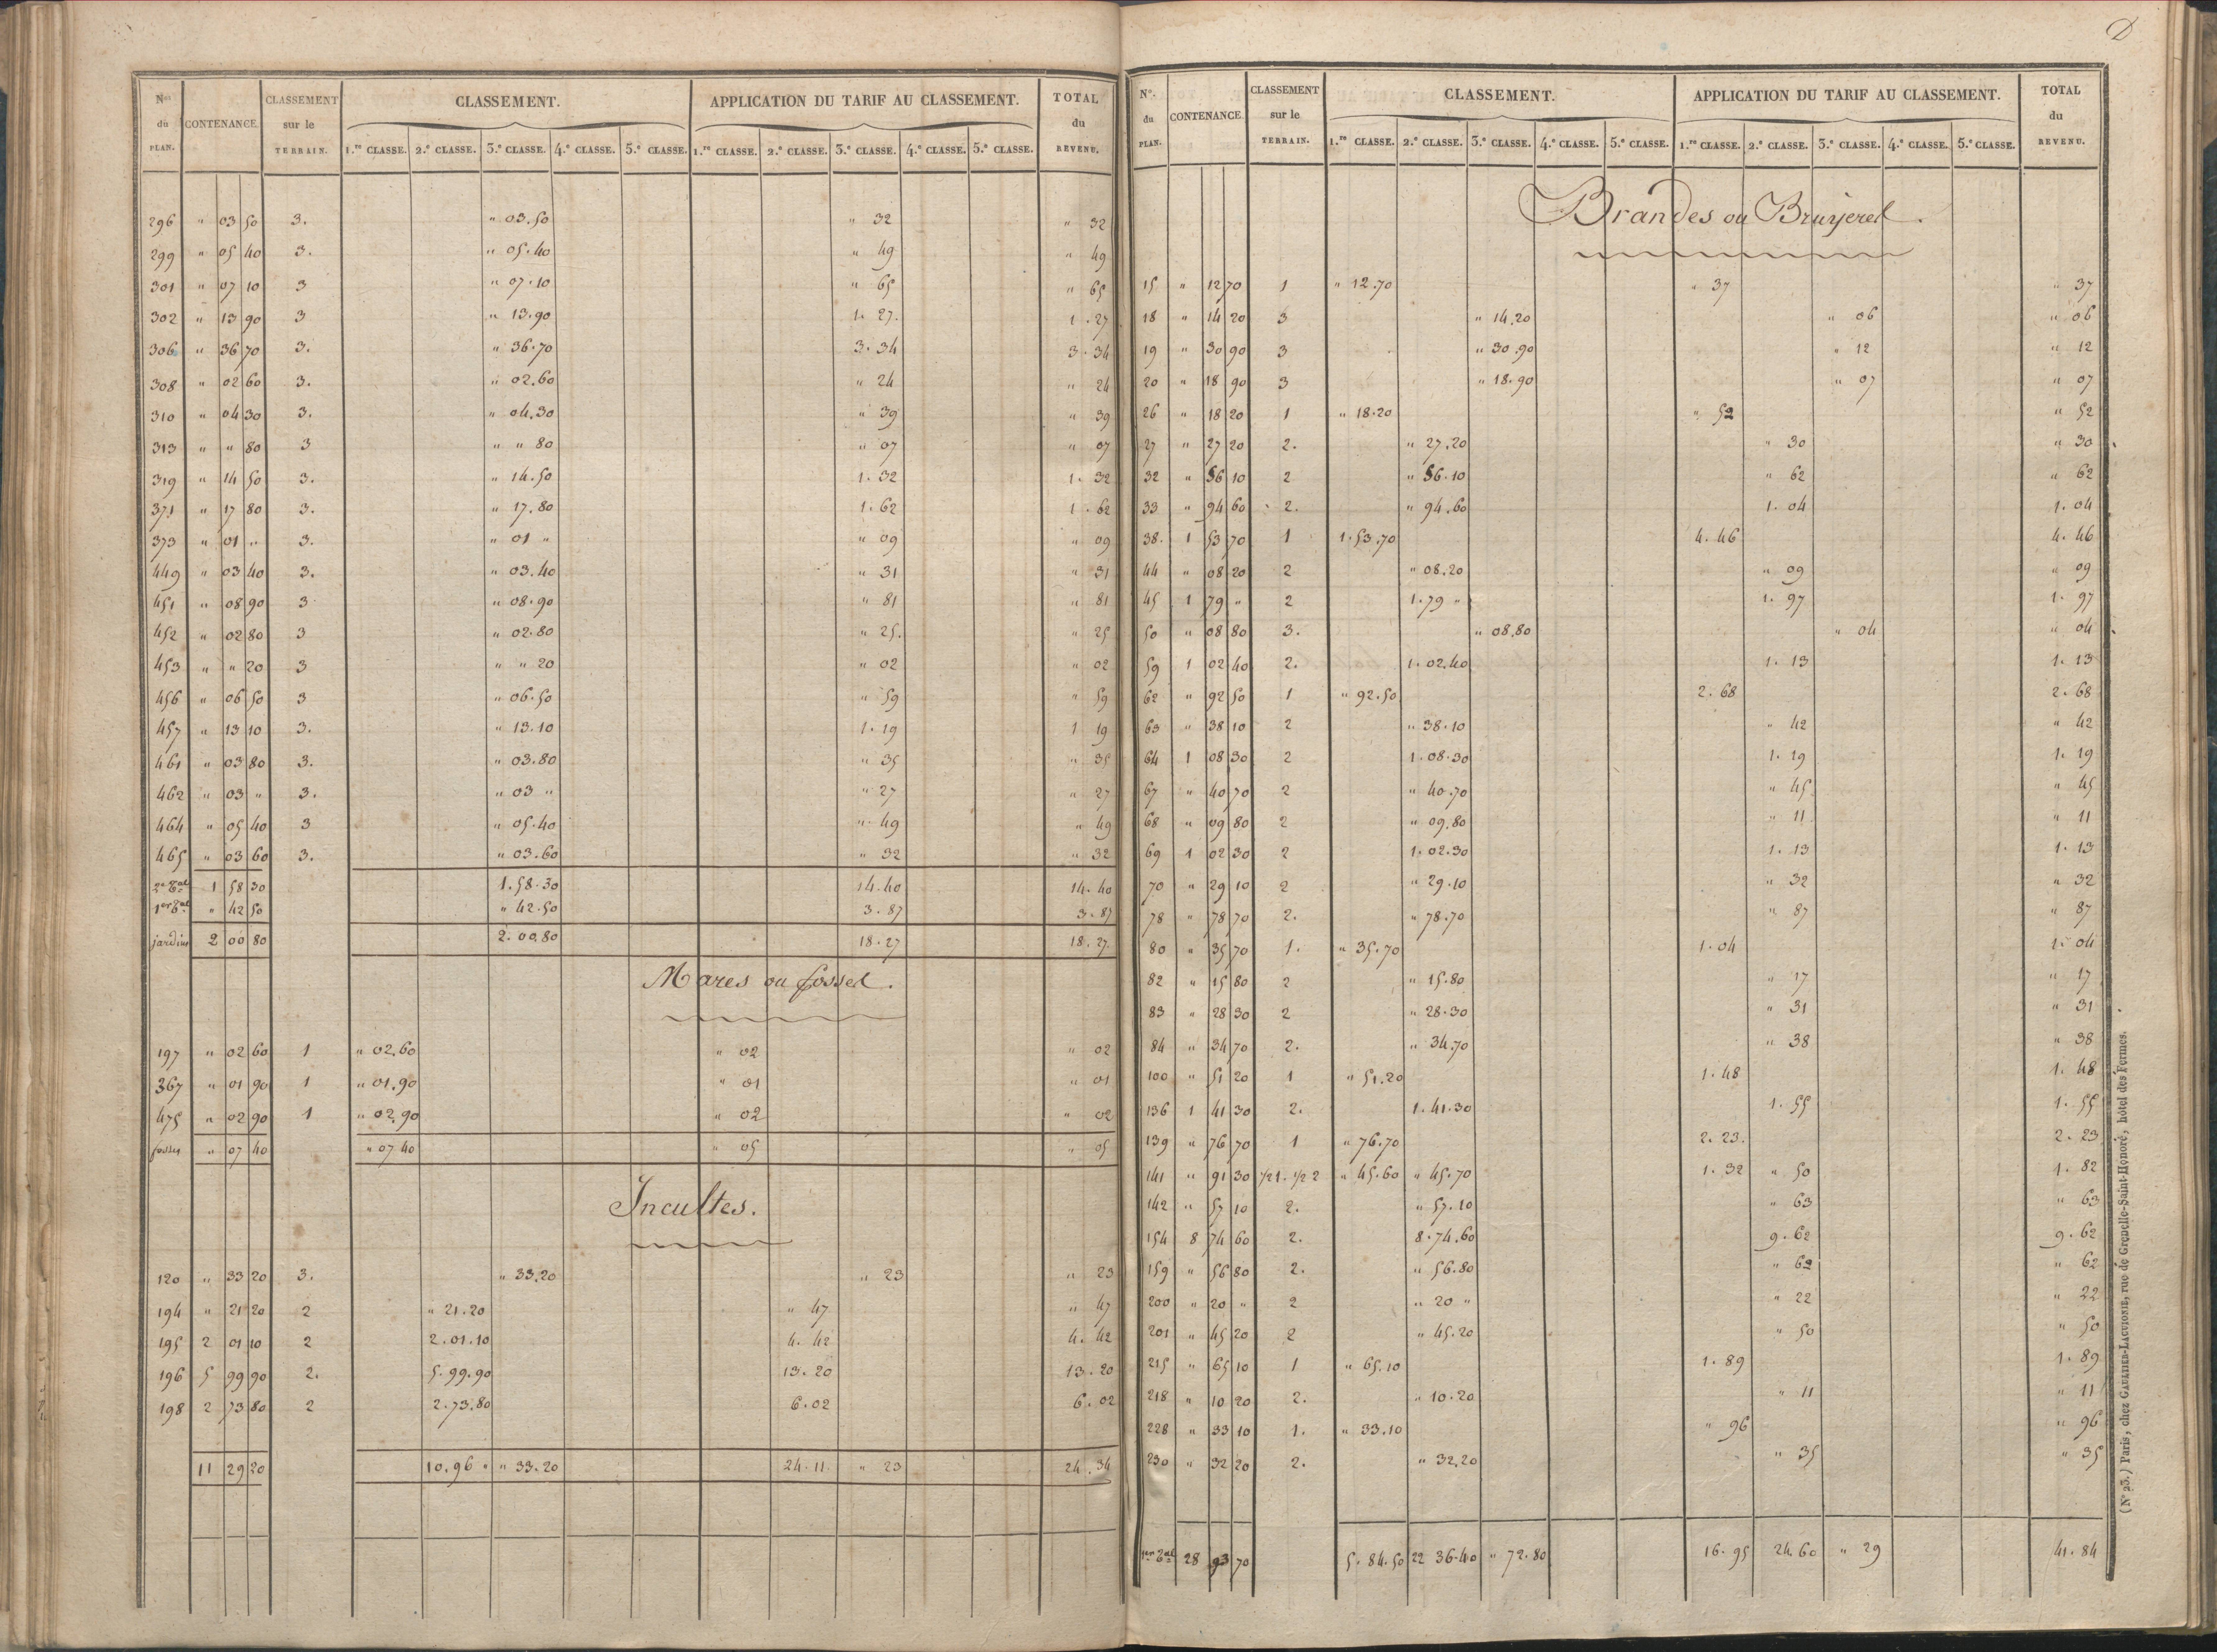 Nos du PLAN. CONTENANCE. CLASSEMENT sur le TERRAIN. CLASSEMENT. APPLICATION DU TARIF AU CLASSEMENT. TOTAL du REVENU.
1.re CLASSE. 2.e CLASSE. 3.e CLASSE. 4.e CLASSE. 5.e CLASSE. 1.re CLASSE. 2.e CLASSE. 3.e CLASSE. 4.e CLASSE. 5.e CLASSE.
296 " 03 50 3. " 03.50 " 32 " 32
299 " 05 40 3. " 05.40 " 49 " 49
301 " 07 10 3 " 07.10 " 65 " 65
302 " 13 90 3 " 13.90 1. 27. 1. 27
306 " 36 70 3. " 36.70 3. 34 3. 34
308 " 02 60 3. " 02.60 " 24 " 24
310 " 04 30 3. " 04.30 " 39 " 39
313 " " 80 3 " " 80 " 07 " 07
319 " 14 50 3. " 14.50 1. 32 1. 32
371 " 17 80 3. " 17.80 1. 62 1. 62
373 " 01 " 3. " 01 " " 09 " 09
449 " 03 40 3. " 03.40 " 31 " 31
451 " 08 90 3 " 08.90 " 81 " 81
452 " 02 80 3 " 02.80 " 25. " 25
453 " " 20 3 " " 20 " 02 " 02
456 " 06 50 3 " 06.50 " 59 " 59
457 " 13 10 3. " 13.10 1. 19 1 19
461 " 03 80 3. " 03.80 " 35 " 35
462 " 03 " 3. " 03 " " 27 " 27
464 " 05 40 3 " 05.40 " 49 " 49
465 " 03 60 3. " 03.60 " 32 " 32
2e Tal 1 58 30 1.58.30 14.40 14.40
1er Tal " 42 50 " 42.50 3.87 3.87
jardins 2 00 80 2.00.80 18.27 18.27
Mares ou fosses.
197 " 02 60 1 " 02.60 " 02 " 02
367 " 01 90 1 " 01.90 " 01 " 01
475 " 02 90 1 " 02.90 " 02 " 02
fosses " 07 40 " 07 40 " 05 " 05
Incultes.
120 " 33 20 3. " 33.20 " 23 " 23
194 " 21 20 2 " 21.20 " 47 " 47
195 2 01 10 2 2.01.10 4. 42 4. 42
196 5 99 90 2. 5.99.90 13. 20 13. 20
198 2 73 80 2 2.73.80 6.02 6.02
11 29 20 10.96 " " 33.20 24.11 " 23 24.34
No. du PLAN. CONTENANCE. CLASSEMENT sur le TERRAIN. CLASSEMENT. APPLICATION DU TARIF AU CLASSEMENT. TOTAL du REVENU.
1.re CLASSE. 2.e CLASSE. 3.e CLASSE. 4.e CLASSE. 5.e CLASSE. 1.re CLASSE. 2.e CLASSE. 3.e CLASSE. 4.e CLASSE. 5.e CLASSE.
Brandes ou Bruyeres.
15 " 12 70 1 " 12.70 " 37 " 37
18 " 14 20 3 " 14.20 " 06 " 06
19 " 30 90 3 " 30.90 " 12 " 12
20 " 18 90 3 " 18.90 " 07 " 07
26 " 18 20 1 " 18.20 " 52 " 52
27 " 27 20 2. " 27.20 " 30 " 30
32 " 56 10 2 " 56.10 " 62 " 62
33 " 94 60 2. " 94.60 1. 04 1. 04
38. 1 53 70 1 1.53.70 4. 46 4. 46
44 " 08 20 2 " 08.20 " 09 " 09
45 1 79 " 2 1.79 " 1. 97 1. 97
50 " 08 80 3. " 08.80 " 04 " 04
59 1 02 40 2. 1. 02.40 1. 13 1. 13
62 " 92 50 1 " 92.50 2. 68 2. 68
63 " 38 10 2 " 38.10 " 42 " 42
64 1 08 30 2 1.08.30 1. 19 1. 19
67 " 40 70 2 " 40.70 " 45 " 45
68 " 09 80 2 " 09.80 " 11 " 11
69 1 02 30 2 1.02.30 1. 13 1. 13
70 " 29 10 2 " 29.10 " 32 " 32
78 " 78 70 2. " 78.70 " 87 " 87
80 " 35 70 1. " 35.70 1.04 1. 04
82 " 15 80 2 " 15.80 " 17 " 17
83 " 28 30 2 " 28.30 " 31 " 31
84 " 34 70 2. " 34.70 " 38 " 38
100 " 51 20 1 " 51.20 1. 48 1. 48
136 1 41 30 2. 1.41.30 1. 55 1. 55
139 " 76 70 1 " 76.70 2. 23. 2. 23
141 " 91 30 1/2 1. 1/2 2 " 45.60 " 45.70 1. 32 " 50 1. 82
142 " 57 10 2. " 57.10 " 63 " 63
154 8 74 60 2. 8.74.60 9. 62 9. 62
159 " 56 80 2. " 56.80 " 62 " 62
200 " 20 " 2 " 20 " " 22 " 22
201 " 45 20 2 " 45.20 " 50 " 50
215 " 65 10 1 " 65.10 1. 89 1. 89
218 " 10 20 2. " 10.20 " 11 " 11
228 " 33 10 1. " 33.10 " 96 " 96
230 " 32 20 2. " 32.20 " 35 " 35
1er Tal 28 93 70 5.84.50 22 36.40 " 72.80 16. 95 24.60 " 29 41. 84
(No 23.) Paris, chez GAULTIER-LAGUIONIE, rue de Grenelle-Saint-Honoré, hôtel des Fermes.